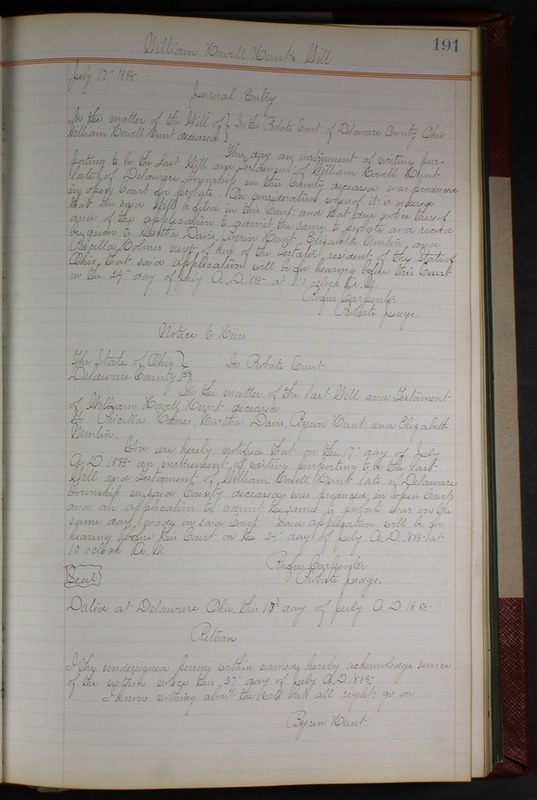 William Howell Hunt's Will
191
July 17" 1885
Journal Entry
In the matter of the Will of } In the Probate Court of Delaware County Ohio
William Howell Hunt deceased
This day an instrument of writing pur-
porting to be the Last Will and Testament of William Howell Hunt
late of Delaware Township in this County deceased was produced
in open Court for probate. On consideration whereof it is ordered
that the said Will be filed in this Court and that due notice thereof
and of the application to admit the same to probate and record
be given to Martha Davis, Byron Hunt, Elizabeth and
Priscilla Holmes next of kin of the Testator, resident of the State of
Ohio, that said application will be for hearing before this Court
on the 24" day of July A.D. 1885 at 10 oclock A.M.
Rufus Carpenter
Probate Judge
Notice to Heirs
The State of Ohio }
Delaware County } ss
In Probate Court
In the matter of the last Will and Testament
of William Howell Hunt deceased
To Priscilla Holmes, Martha Davis, Byron Hunt, and Elizabeth
You are hereby notified that on the 17" day of July
A.D. 1885 an instrument of writing purporting to be the last
Will and Testament of William Howell Hunt late of Delaware
Township in said County deceased, was produced in open Court
and an application to admit the same to probate was on the
same day made in said Court. Said application will be for
hearing before this Court on the 24" day of July A.D. 1885 at
10 oclock A.M.
Rufus Carpenter
Seal
Probate Judge.
Dated at Delaware Ohio, this 17" day of July A.D. 1885
Return
I the undersigned person within named, hereby acknowledge service
of the within notice this day of July A.D. 1885
I know nothing about the Will but all right, go on
Byron Hunt